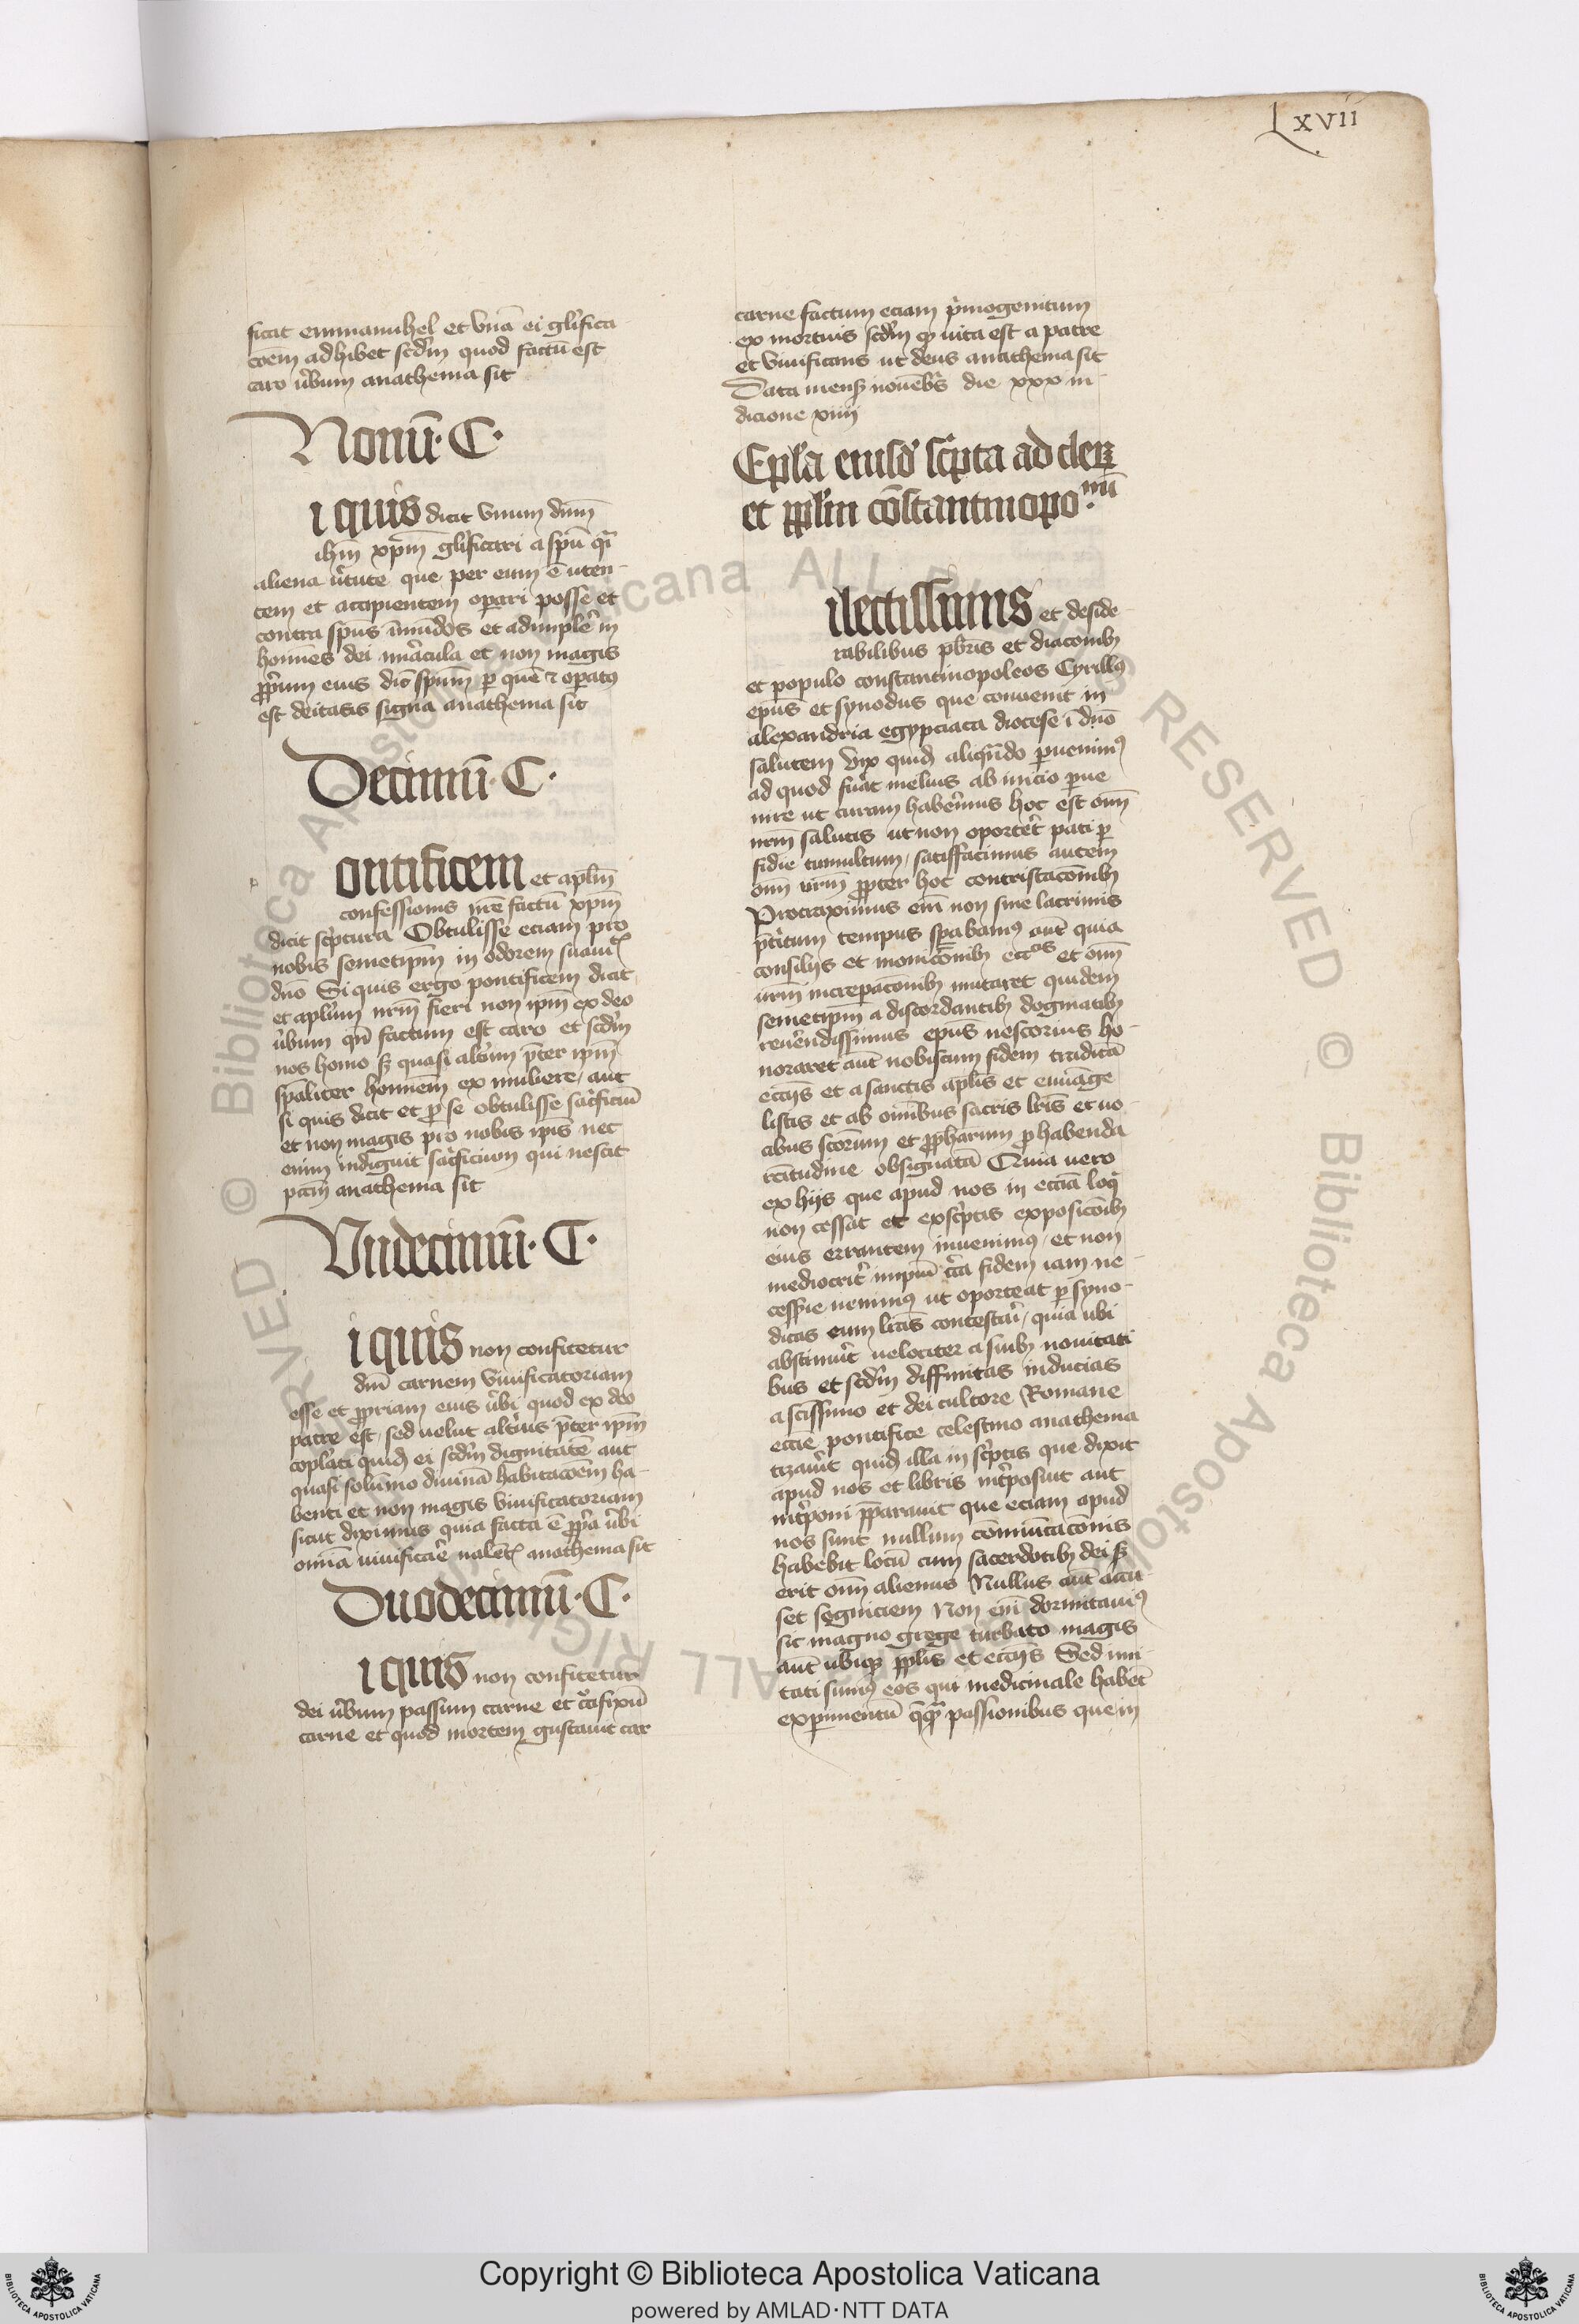 Lxvii
ficat emmanuhel et vnā ei glīfica
cōem adhibet scdm̄ quod factū est
caro v̄bum anathema sit
Nonū· C·
i quis dicit vnum dnm̄
ihm̄ xpm̄ glīficari a spū qͣi
aliena v̄tute que per eum ē uten
tem et accipientem operari posse et
contra spūs īmūdos et adimplēr in
homines dei miracula et non magis
ppīum eius dic̄ spūm p quē ⁊ operatꝰ
est deitatis signa anathema sit
Decimū· C·
ontificem et aplm̄
confessionis nrē factū xpm̄
dicit scptura Obtulisse eciam pro
nobis semetipm̄ in odorem suauit
duō Si quis ergo pontificem dicit
et aplm̄ nrm̄ fieri non ipm̄ ex deo
v̄bum qn̄ factum est caro et scdm̄
nos homo sꝫ quasi altīm p̄ter ipm̄
spāliter hominem ex muliere, aut
si quis dicit et p se obtulisse sacficiū
et non magis pro nobis ipis nec
enim indiguit sacficium qui nescit
pctm̄ anathema sit
Vndecimū· C·
i quis non confitetur
dnī carnem viuificatoriam
esse et ppriam eius v̄bi quod ex deo
patre est, sed uelut altīus p̄ter ipm̄
coplāti quidē ei scdm̄ dignitatē aut
quasi solūmo diuinā habitacōem ha-
benti et non magis viuificatoriam
sicut diximus quia facta ē ppā v̄bi
omīa uiuificāre ualēt anathema sit
Duodecimū· C·
i quis non confitetur
dei v̄bum passum carne et cͨcifixū
carne et quod mortem gustauit car
carne factum eciam pͥmogenitum
ex mortuis scdm̄ qͦ uita est a patre
et viuificans ut deus anathema sit
Data mensꝫ nouēbͥs die xxx in-
dicione xiiij
Epl̄a eiusd̄ scͥpta ad clerꝫ
et pplm̄ cōstantinopo·nū
ilectissimis et deside
rabilibus pbrīs et diaconibꝫ
et populo constantinopoleos Cyrillꝰ
epūs et synodus que conuenit in
alexandria egypciaca diocese ī dnō
salutem Vix quidē aliqn̄do puenimꝰ
ad quod fuāt melius ab inicio pue
nire ut curam habērimus hoc est om̄
nrm̄ salutis ut non oportet pati p
fidie tumultum, satisfacimus autem
om̄ urm̄ ppter hoc contristacōnibꝫ
Protraximus em̄ non sine lacrimis
p̄titum tempus spabamꝰ aut quia
consilijs et monicōnibꝫ eccos et om̄
urm̄ increpacōnibꝫ mutaret quidem
semetipm̄ a discordantibꝫ dogmatibꝫ
reuēndissimus epūs nestorius ho-
noraret aut nobiscum fidem traditā
eccijs et a sanctis aplīs et euuāge
listis et ab omībus sacris lrīs et uo-
cibus scōrum et pphārum p habenda
rectitudine obsignatā Quia uero
ex hijs que apud nos in eccīa loqͥ
non cessat et exscptis exposicōnibꝫ
eius errantem inuenimꝰ, et non
mediocrit impiū cͨa fidem iam ne-
cessīe uenimꝰ ut oporteat p syno-
dicas eum lrās contestāri, quia ubi
abstinuīt uelociter a suibꝫ nouitati
bus et scdm̄ diffinitas inducias
a scīssimo et dei cultore Romane
eccīe pontifice celestino anathema
tizauīt quidē illa in scptis que dixit
apud nos et libris intposuit aut
intponi pparauit que eciam apud
nos sunt nullum cōmunicacōnis
habebit locū cum sacerdotibꝫ dei sꝫ
erit om̄ alienus Nullus aut accu-
set segniciem Non em̄ dormitauiꝰ
sic magno grege turbato magis
aut ubiqꝫ pplīs et eccijs Sed imi-
tati sumꝰ eos qui medicinale habēt
experimentū qͥqꝫ passionibus que in
Copyright © Biblioteca Apostolica Vaticana
powered by AMLAD·NTT DATA